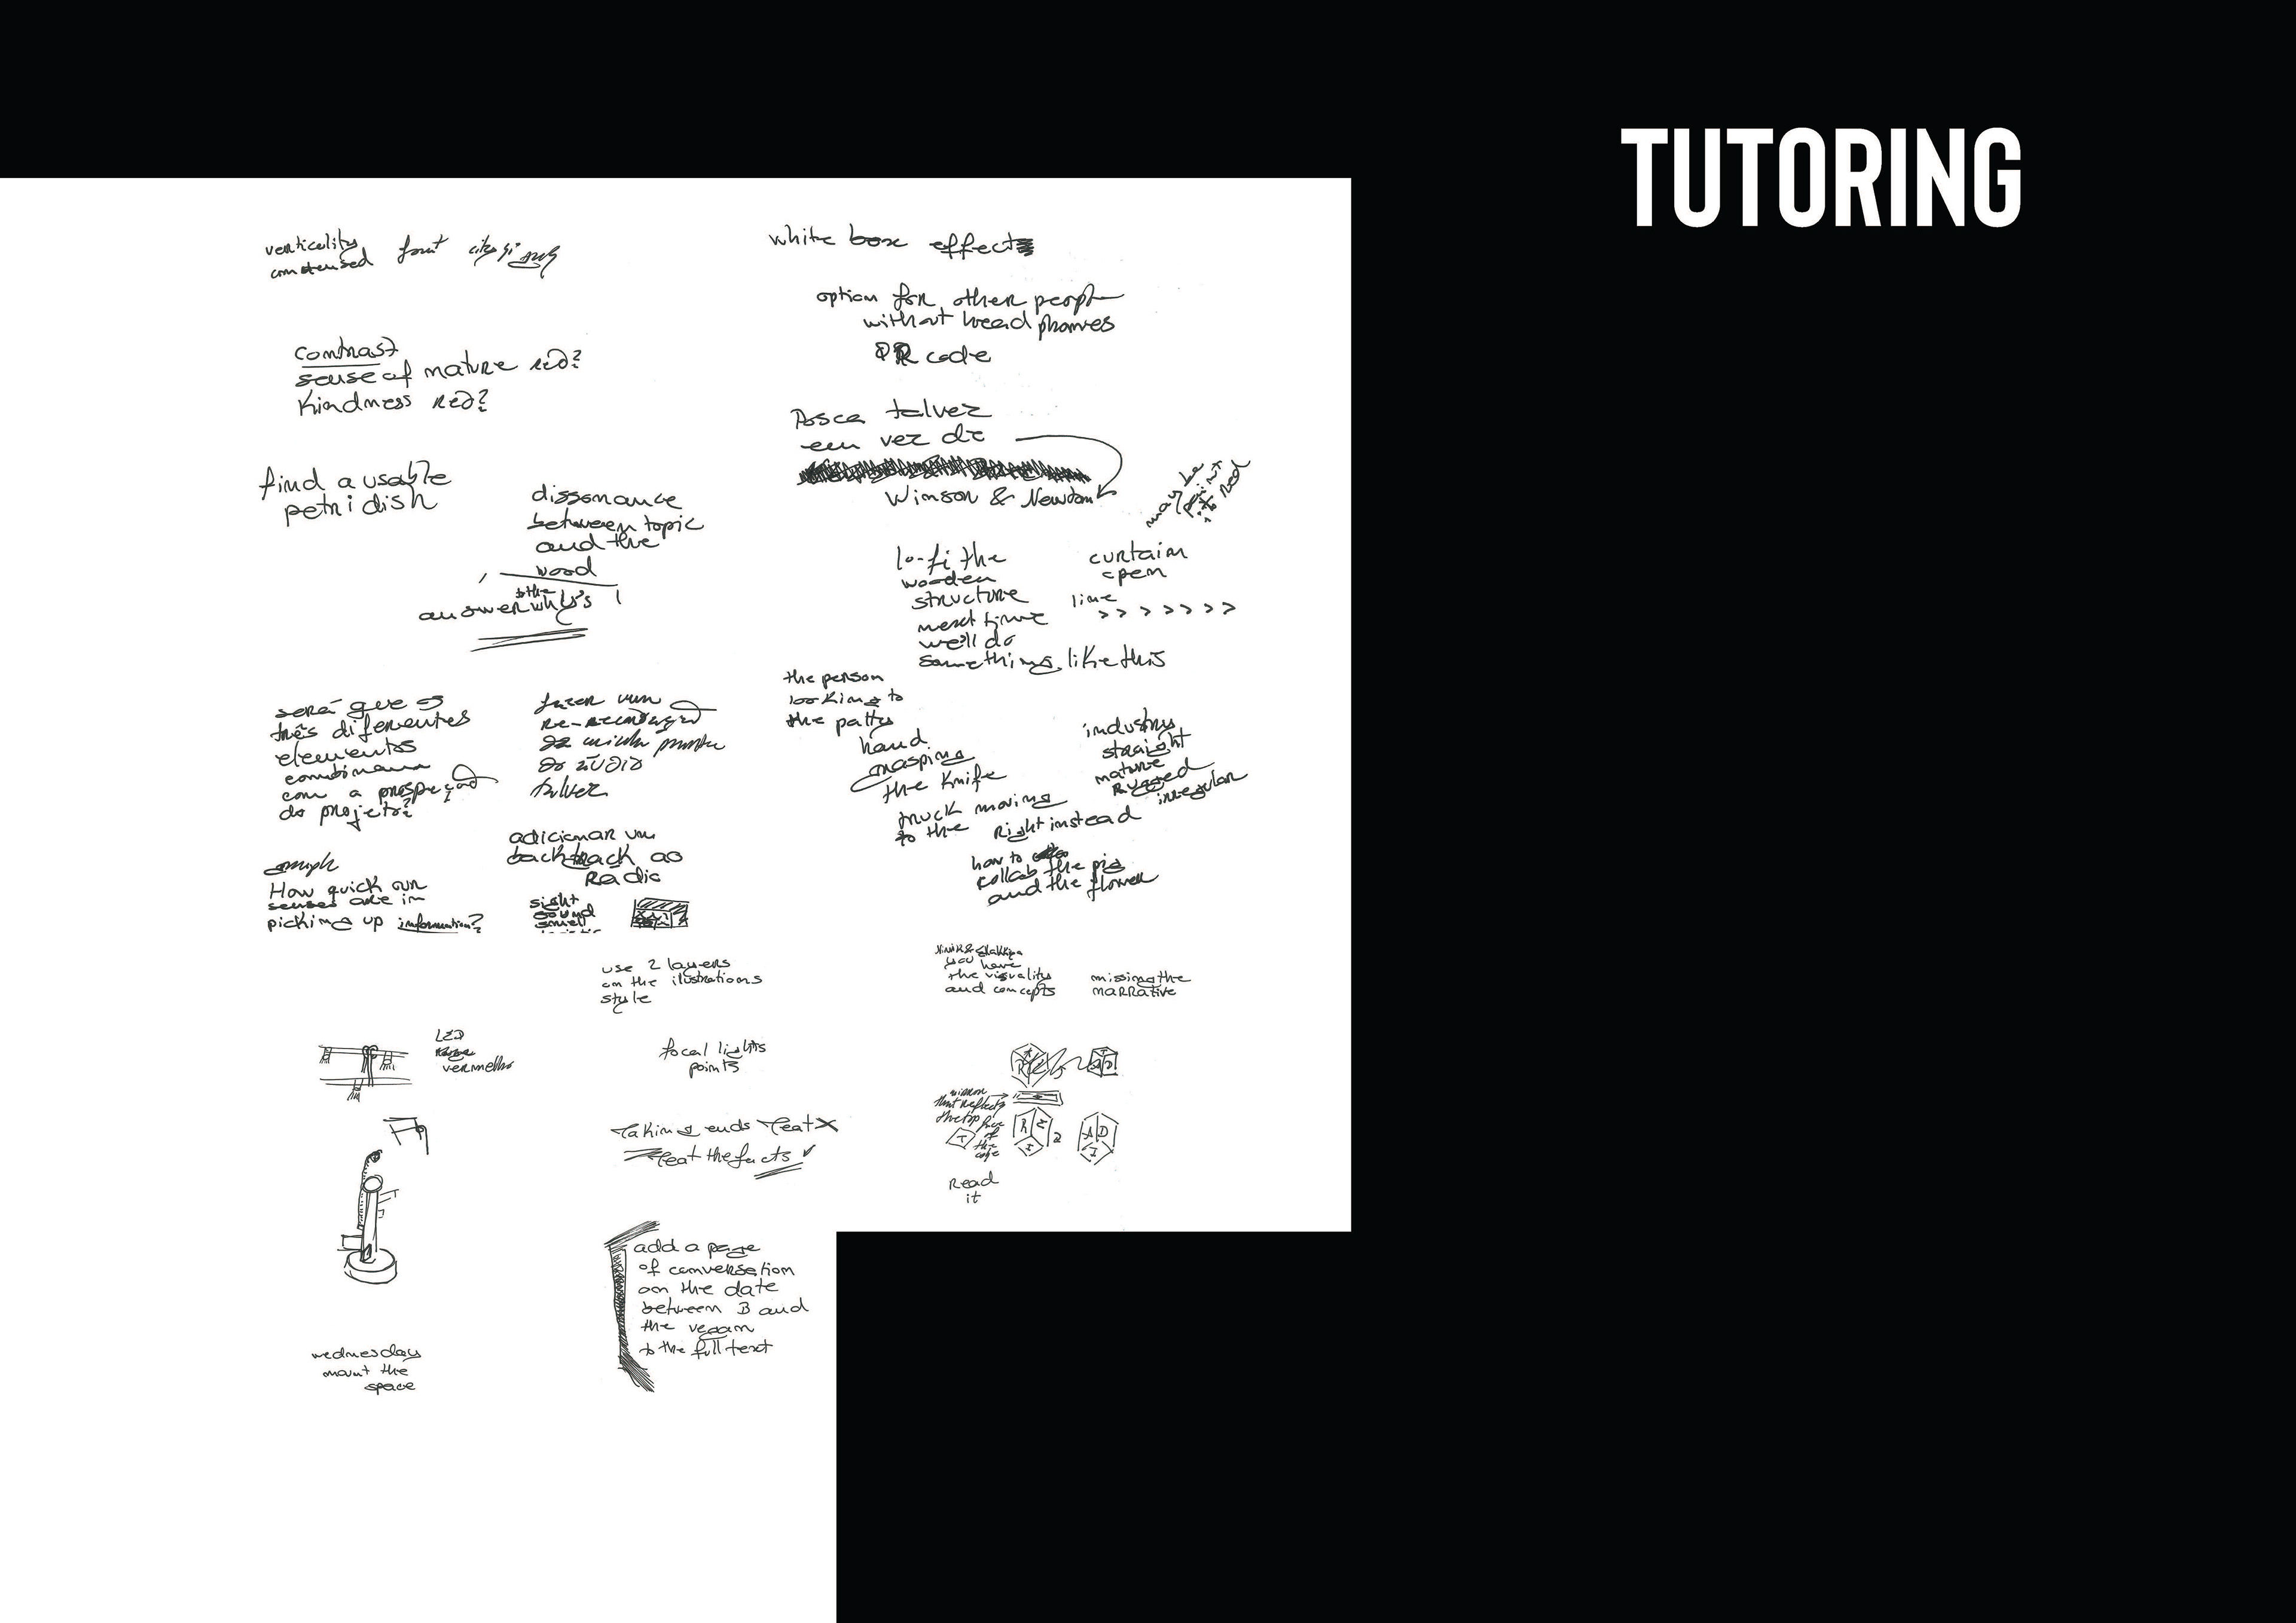 TUTORING
verticality
condensed font
white box effect
option for other people
without headphones
QR code
contrast
sense of nature red?
Kindness red?
Posca talvez
em vez de
Winson & Newton
maybe
paint
it red
find a usable
petri dish
dissonance
between topic
and the
wood
to the
answer why's
lo-fi the
wooden
structure
next time
we'll do
something like this
curtain
open
line
> > > > > > >
será que os
três diferentes
elementos
combinam
com a prospeção
do projeto?
fazer um
da minha
do áudio
talvez
the person
looking to
the pattys
hand
grasping
the knife
truck moving
to the right instead
industry
straight
nature
rugged
irregular
how to
collab the pig
and the flower
adicionar um
backtrack ao
Rádio
How quick our
senses are in
picking up information?
sight
sound
smell
use 2 layers
on the ilustrations
style
you have
the visuality
and concepts
missing the
narrative
LED
vermelho
focal lights
points
mirror
that reflects
the top face
of
the
cube
T
R
E
I
2
A D
I
Read
it
Taking ends Teat X
Teat the facts ✓
add a page
of conversation
on the date
between B and
the vegan
to the full text
wednesday
mount the
space